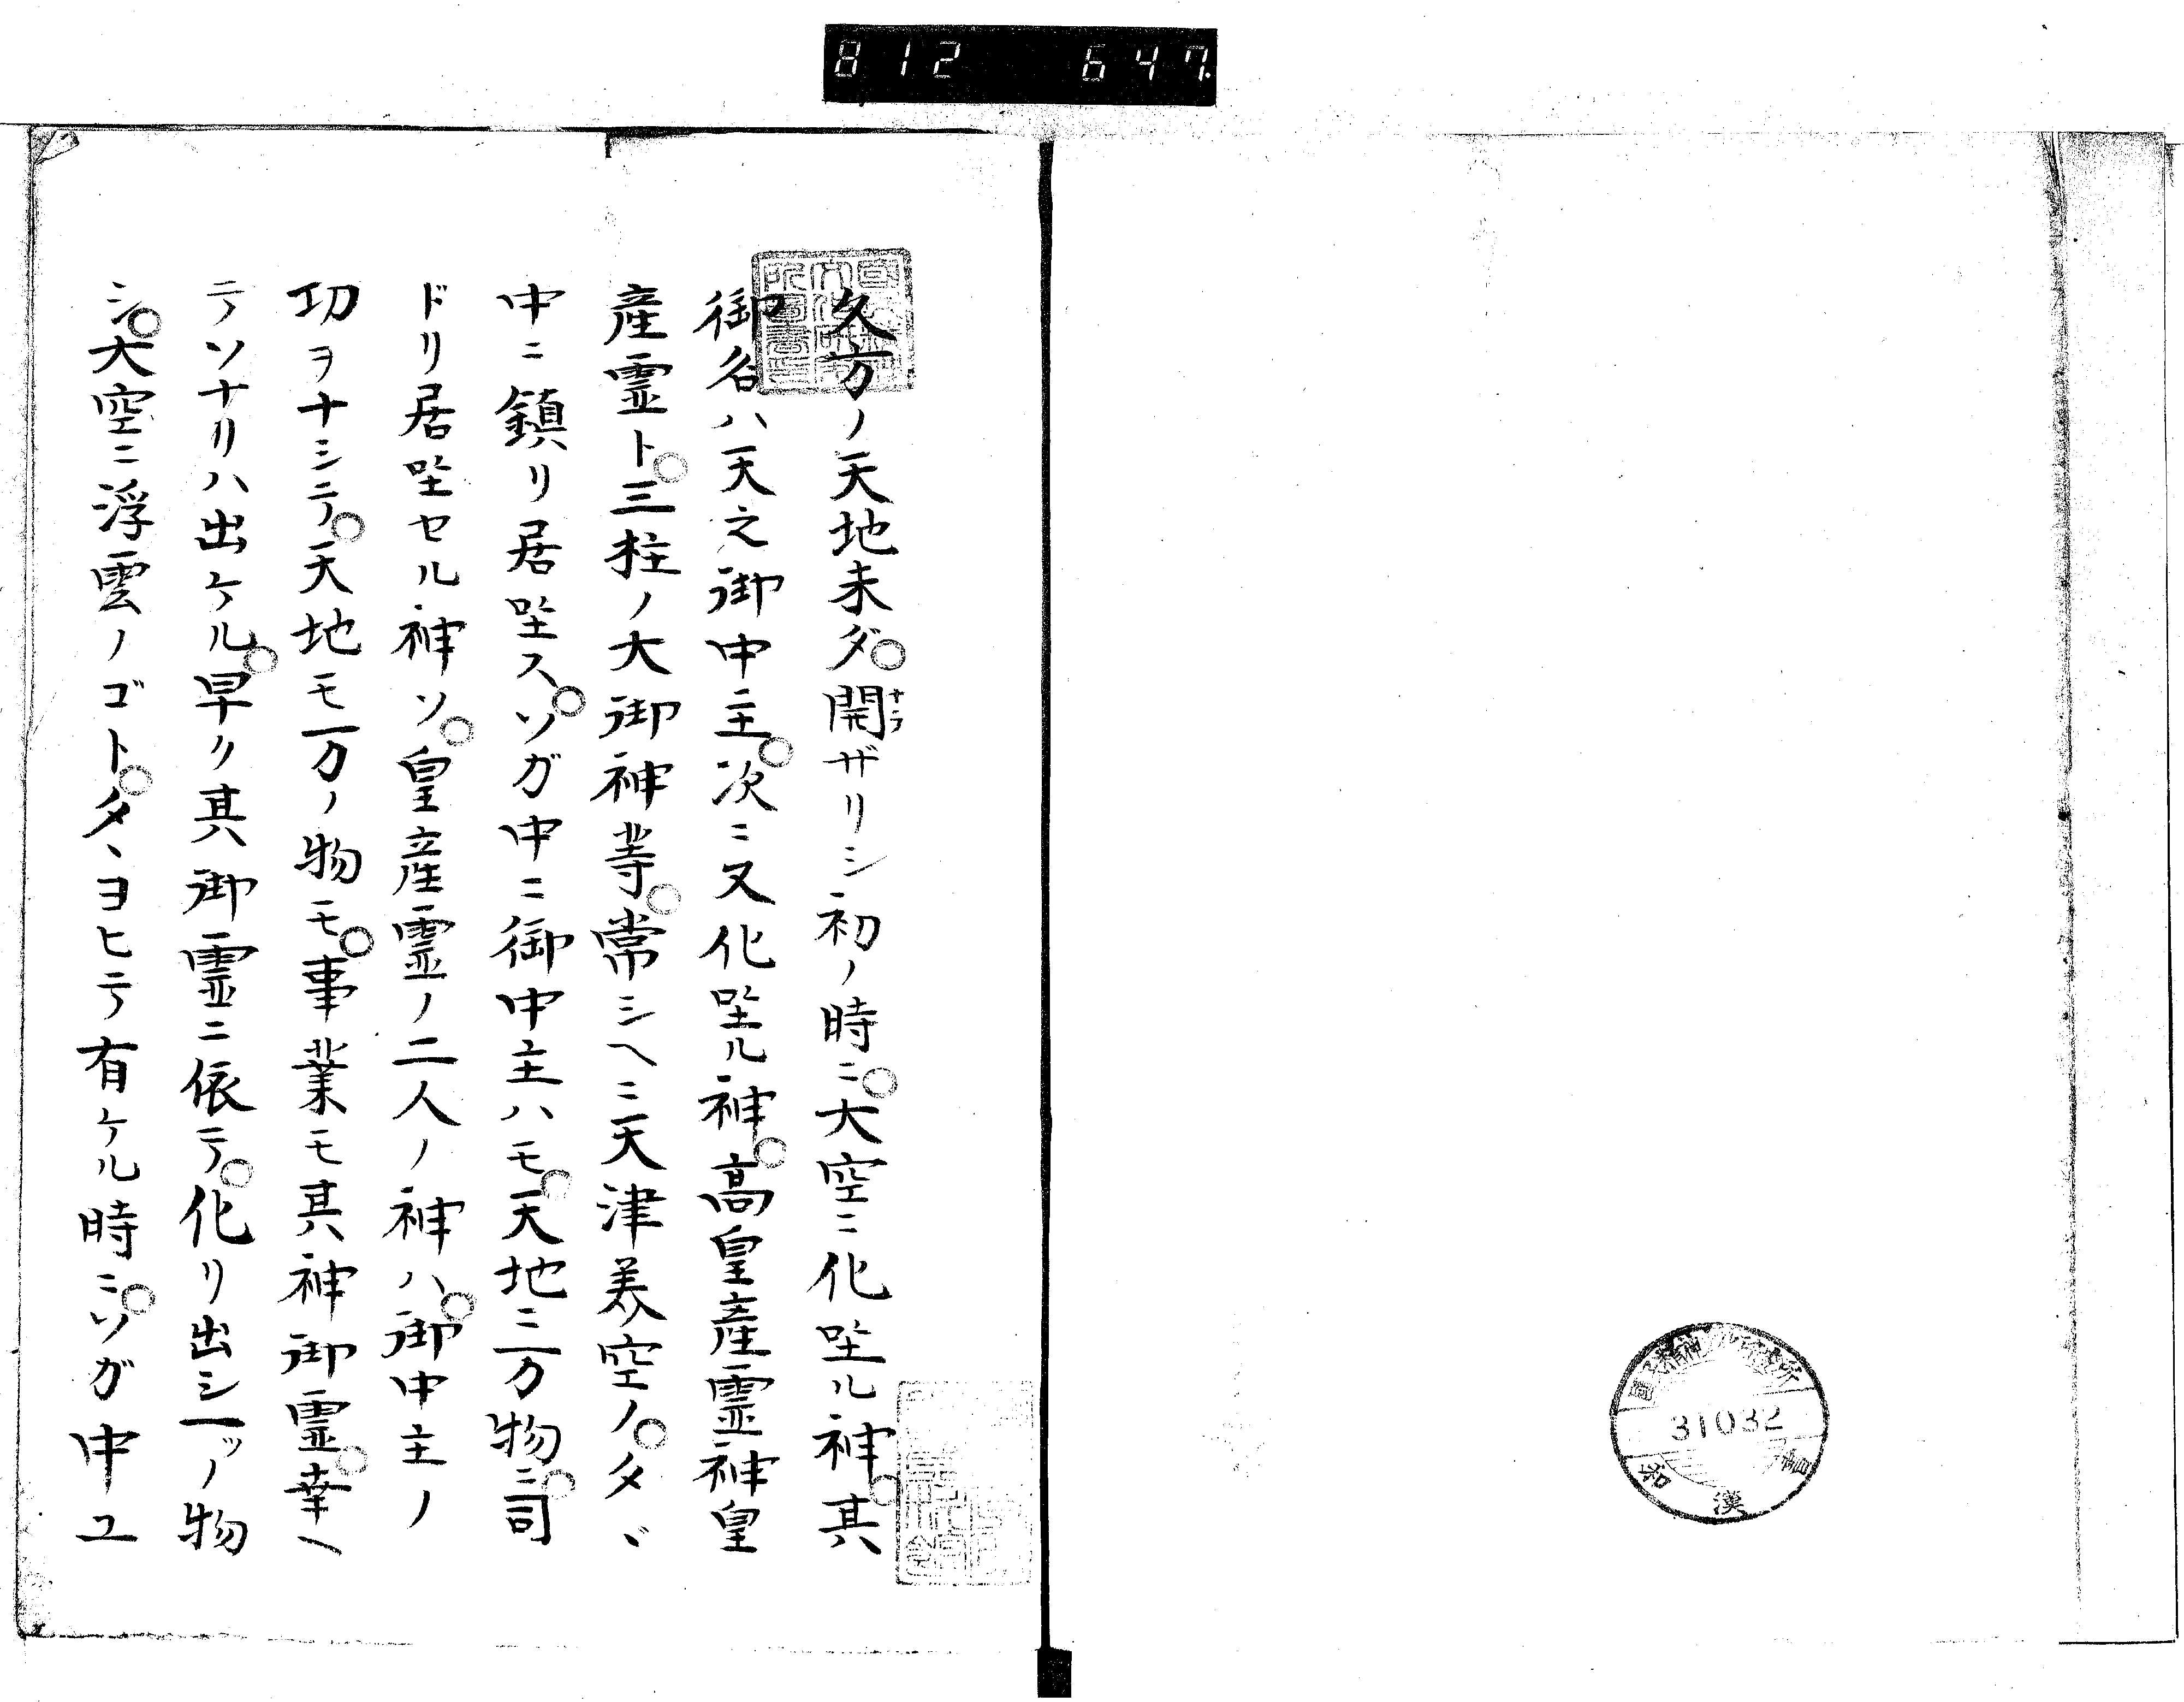 812 647
久方ノ天地未ダ開ザリシ初ノ時ニ大空ニ化坐ル神其
ナラ
御名ハ天之御中主次ニ又化坐ル神高皇産霊神皇
産霊ト三柱ノ大御神等常シヘニ天津美空ノタヾ
中ニ鎮リ居坐スソガ中ニ御中主ハモ天地ニ万物ニ司
ドリ居坐セル神ソ皇産霊ノ二人ノ神ハ御中主ノ
功ヲナシテ天地モ万ノ物モ事業モ其神御霊幸ヘ
テソナリハ出ケル早ク其御霊ニ依テ化リ出シ一ッノ物
シ大空ニ浮雲ノゴトタヽヨヒテ有ケル時ニソガ中ユ
31032
和漢書